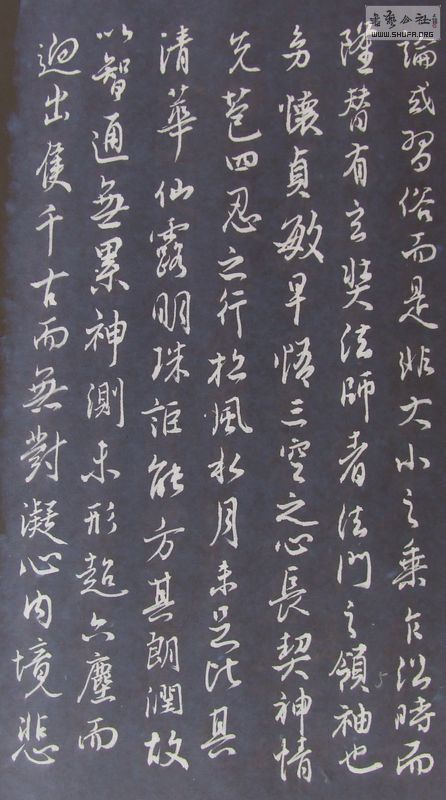 論或習俗而是非大小之乘乍沿時而
隆替有玄奘法師者法門之領袖也
幼懷貞敏早悟三空之心長契神情
先苞四忍之行松風水月未足比其
清華仙露明珠詎能方其朗潤故
以智通無累神測未形超六塵而
迥出隻千古而無對凝心內境悲
書藝公社
WWW.SHUFA.ORG